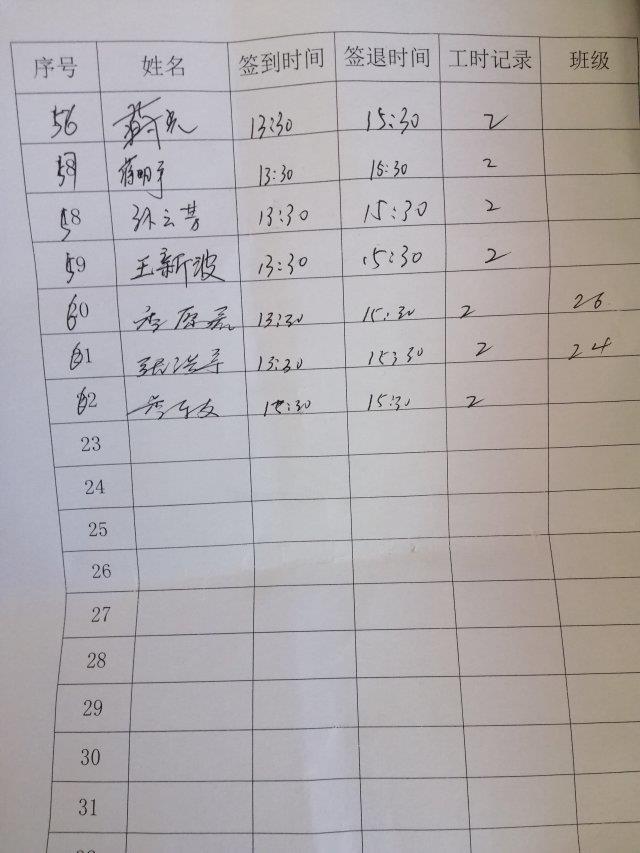 序号 姓名 签到时间 签退时间 工时记录 班级
56 蒋 13:30 15:30 2
蒋明 13:30 15:30 2
58 孙云芳 13:30 15:30 2
59 王新波 13:30 15:30 2
60 13:30 15:30 2 26
61 张洪 13:30 15:30 2 24
62 15:30 2
23
24
25
26
27
28
29
30
31